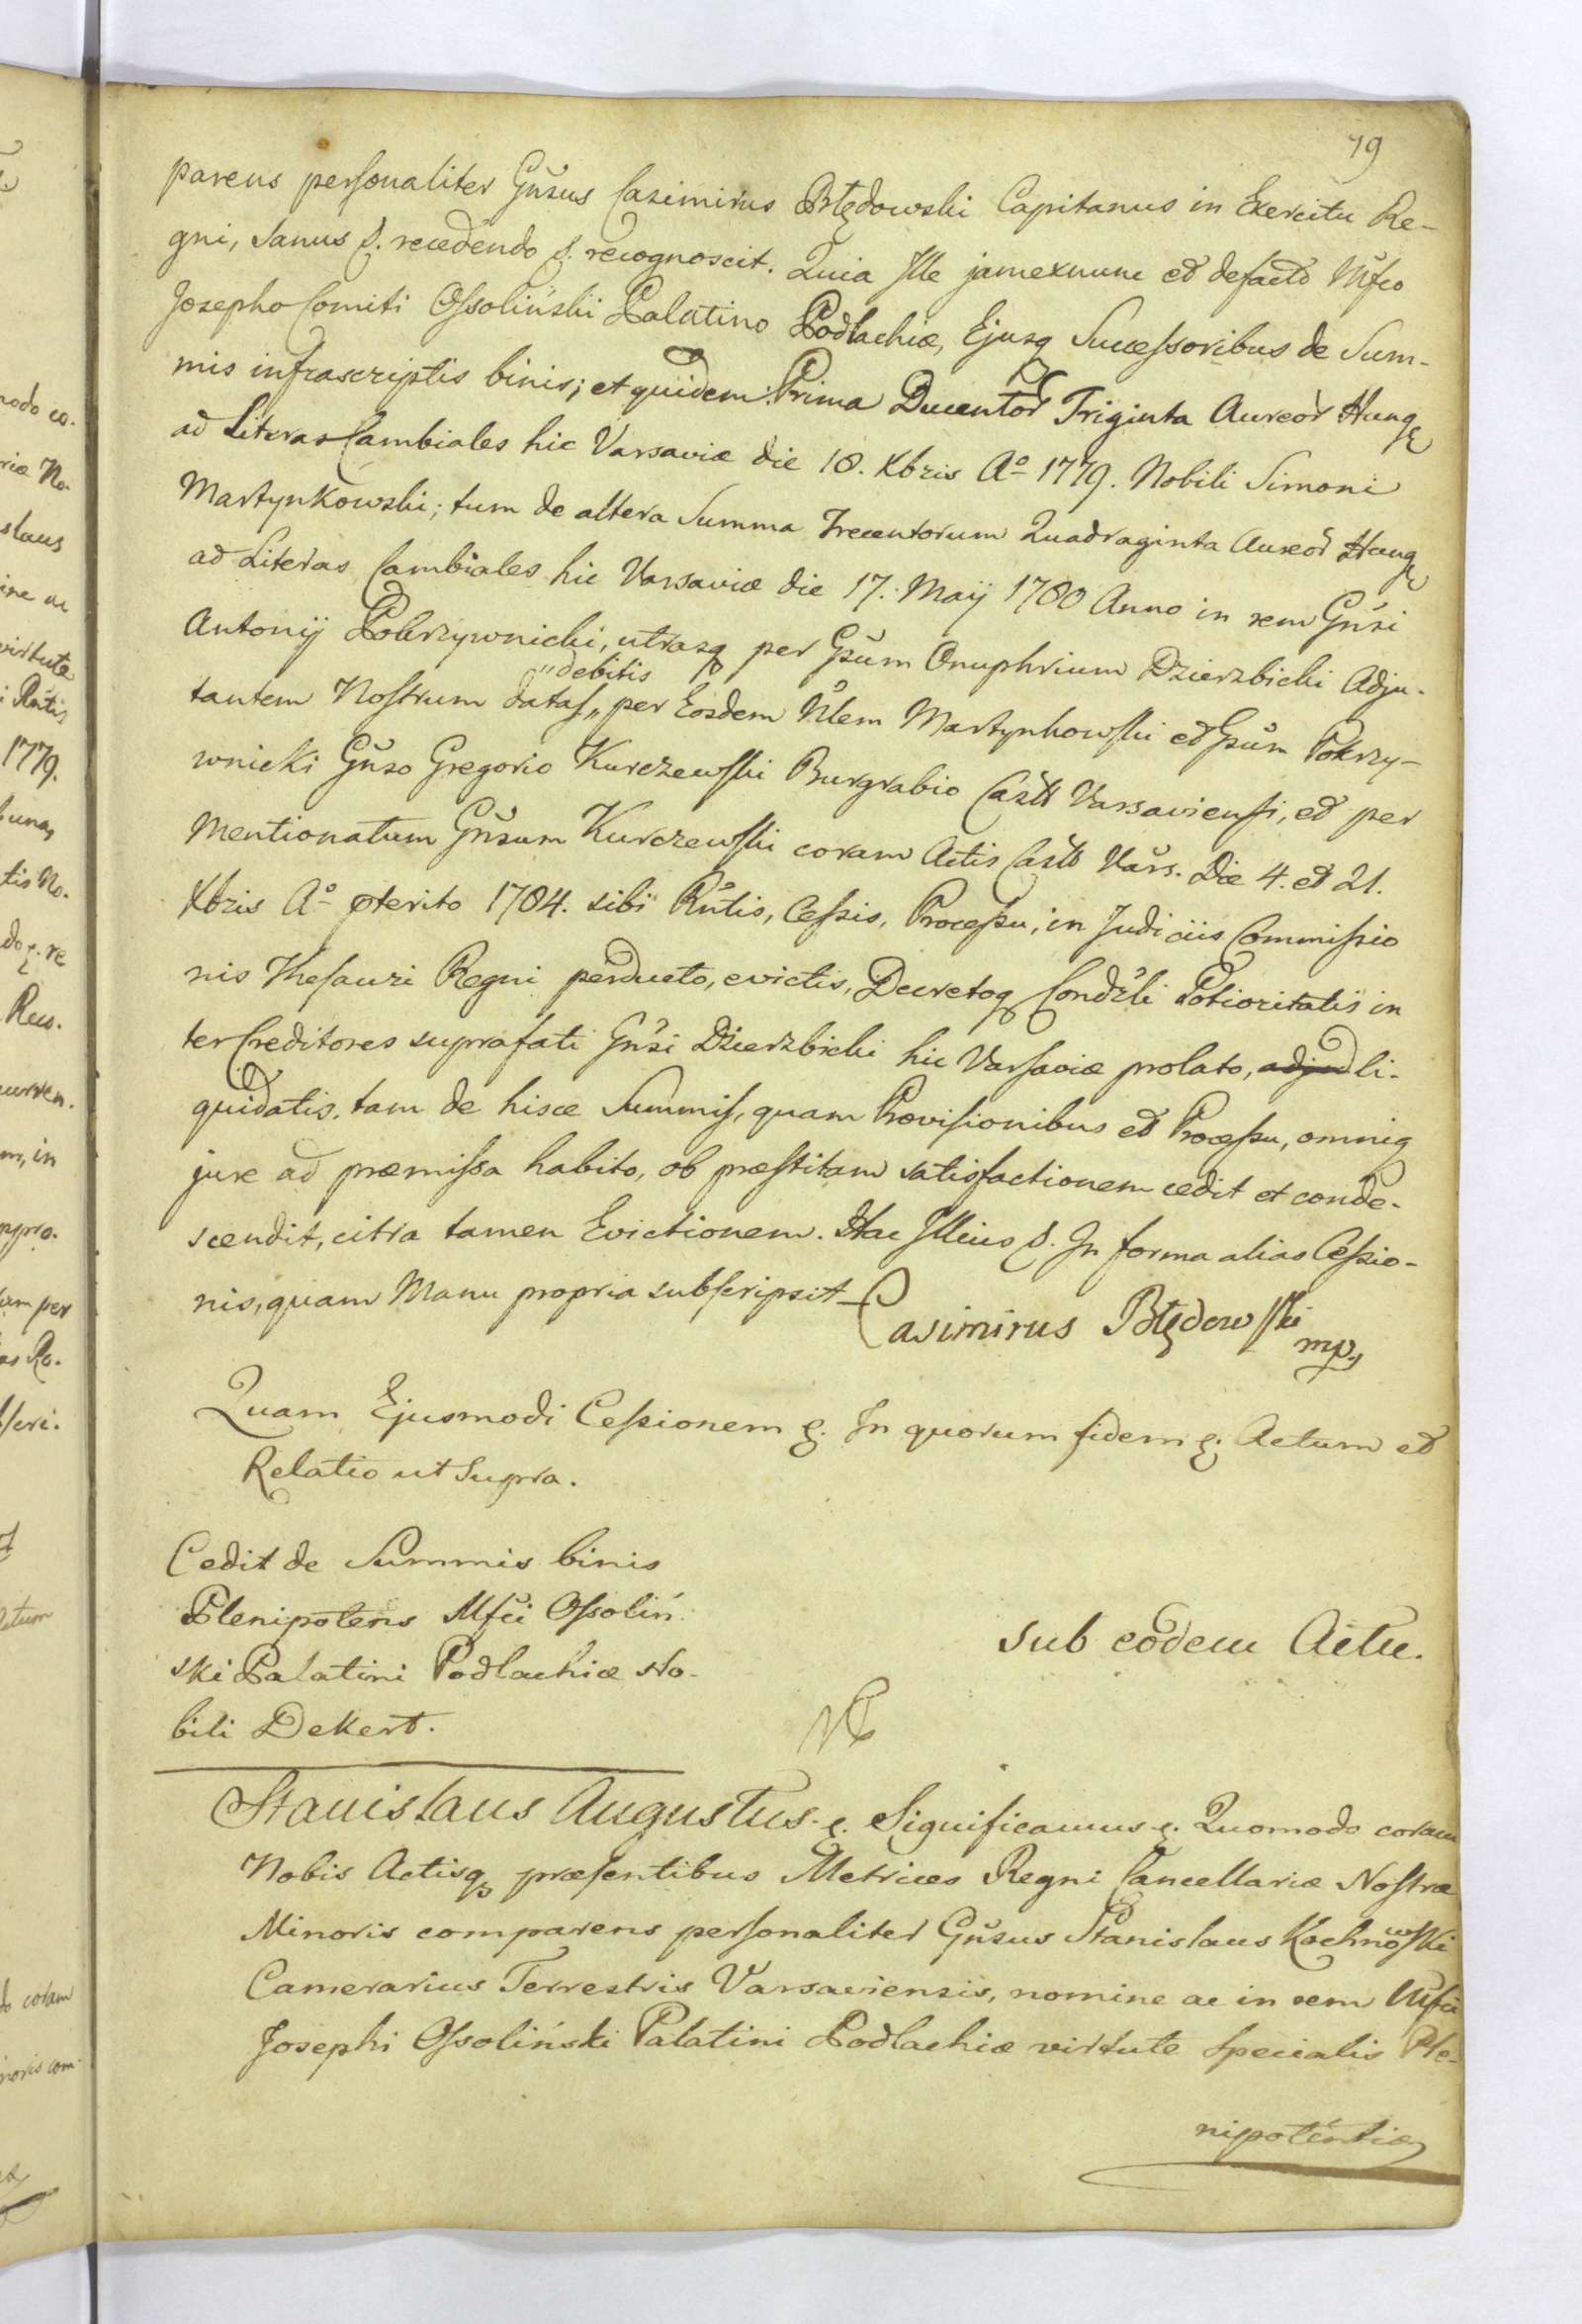 79
parens personaliter Gnsus Casimirus Błędowski Capitanus in Exercitu Re-
gni, Sanus &. recedendo &. recognoscit. Quia Ille jamexnunc et defacto Mfco
Josepho Comiti Ossoliński Palatino Podlachiæ, Ejusq Successoribus de Sum-
mis infrascriptis binis; et quidem: Prima Ducentor Triginta Aureor Hung
ad Literas Cambiales hic Varsaviæ die 18. Xbris Ao 1779. Nobili Simoni
Martynkowski; tum de altera Summa Trecentorum Quadraginta Aureor Hung
ad Literas Cambiales hic Varsaviæ die 17. Maij 1780 Anno in rem Gnsi
Antonij Pokrzywnicki, utrasq per Gsum Onuphrium Dzierzbicki Adju-
"debitis
tantem Nostrum datas,, per Eosdem Nlem Martynkowski et Gsum Pokrzy-
wnicki Gnso Gregorio Kurczewski Burgrabio Castr Varsaviensi, et per
Mentionatum Gnsum Kurczewski coram Actis Castr Vars. Die 4. et 21.
Xbris Ao pterito 1784. sibi Rntis, Cessis, Processu, in Judiciis Commissio
nis Thesauri Regni perducto, evictis, Decretoq Condsli Potioritatis in
ter Creditores suprafati Gnsi Dzierzbicki hic Varsaviæ prolato, adjud li-
quidatis, tam de hisce Summis, quam Provisionibus et Processu, omniq
jure ad præmissa habito, ob præstitam satisfactionem cedit et conde-
scendit, citra tamen Evictionem. Hac Illius &. In forma alias Cessio-
nis, quam Manu propria subscripsit Casimirus Błędowski
mp,
Quam Ejusmodi Cessionem &. In quorum fidem &. Actum et
Relatio ut Supra.
Cedit de Summis binis
Plenipotens Mfci Ossoliń
ski Palatini Podlachiæ No-
bili Dekert.
Sub eodem Actu.
Stanislaus Augustus &. Significamus &. Quomodo coram
Nobis Actisq præsentibus Metrices Regni Cancellariæ Nostræ
Minoris comparens personaliter Gnsus Stanislaus Kochnowski
Camerarius Terrestris Varsaviensis, nomine ac in rem Mfci
Josephi Ossoliński Palatini Podlachiæ virtute Specialis Ple-
nipotentiæ